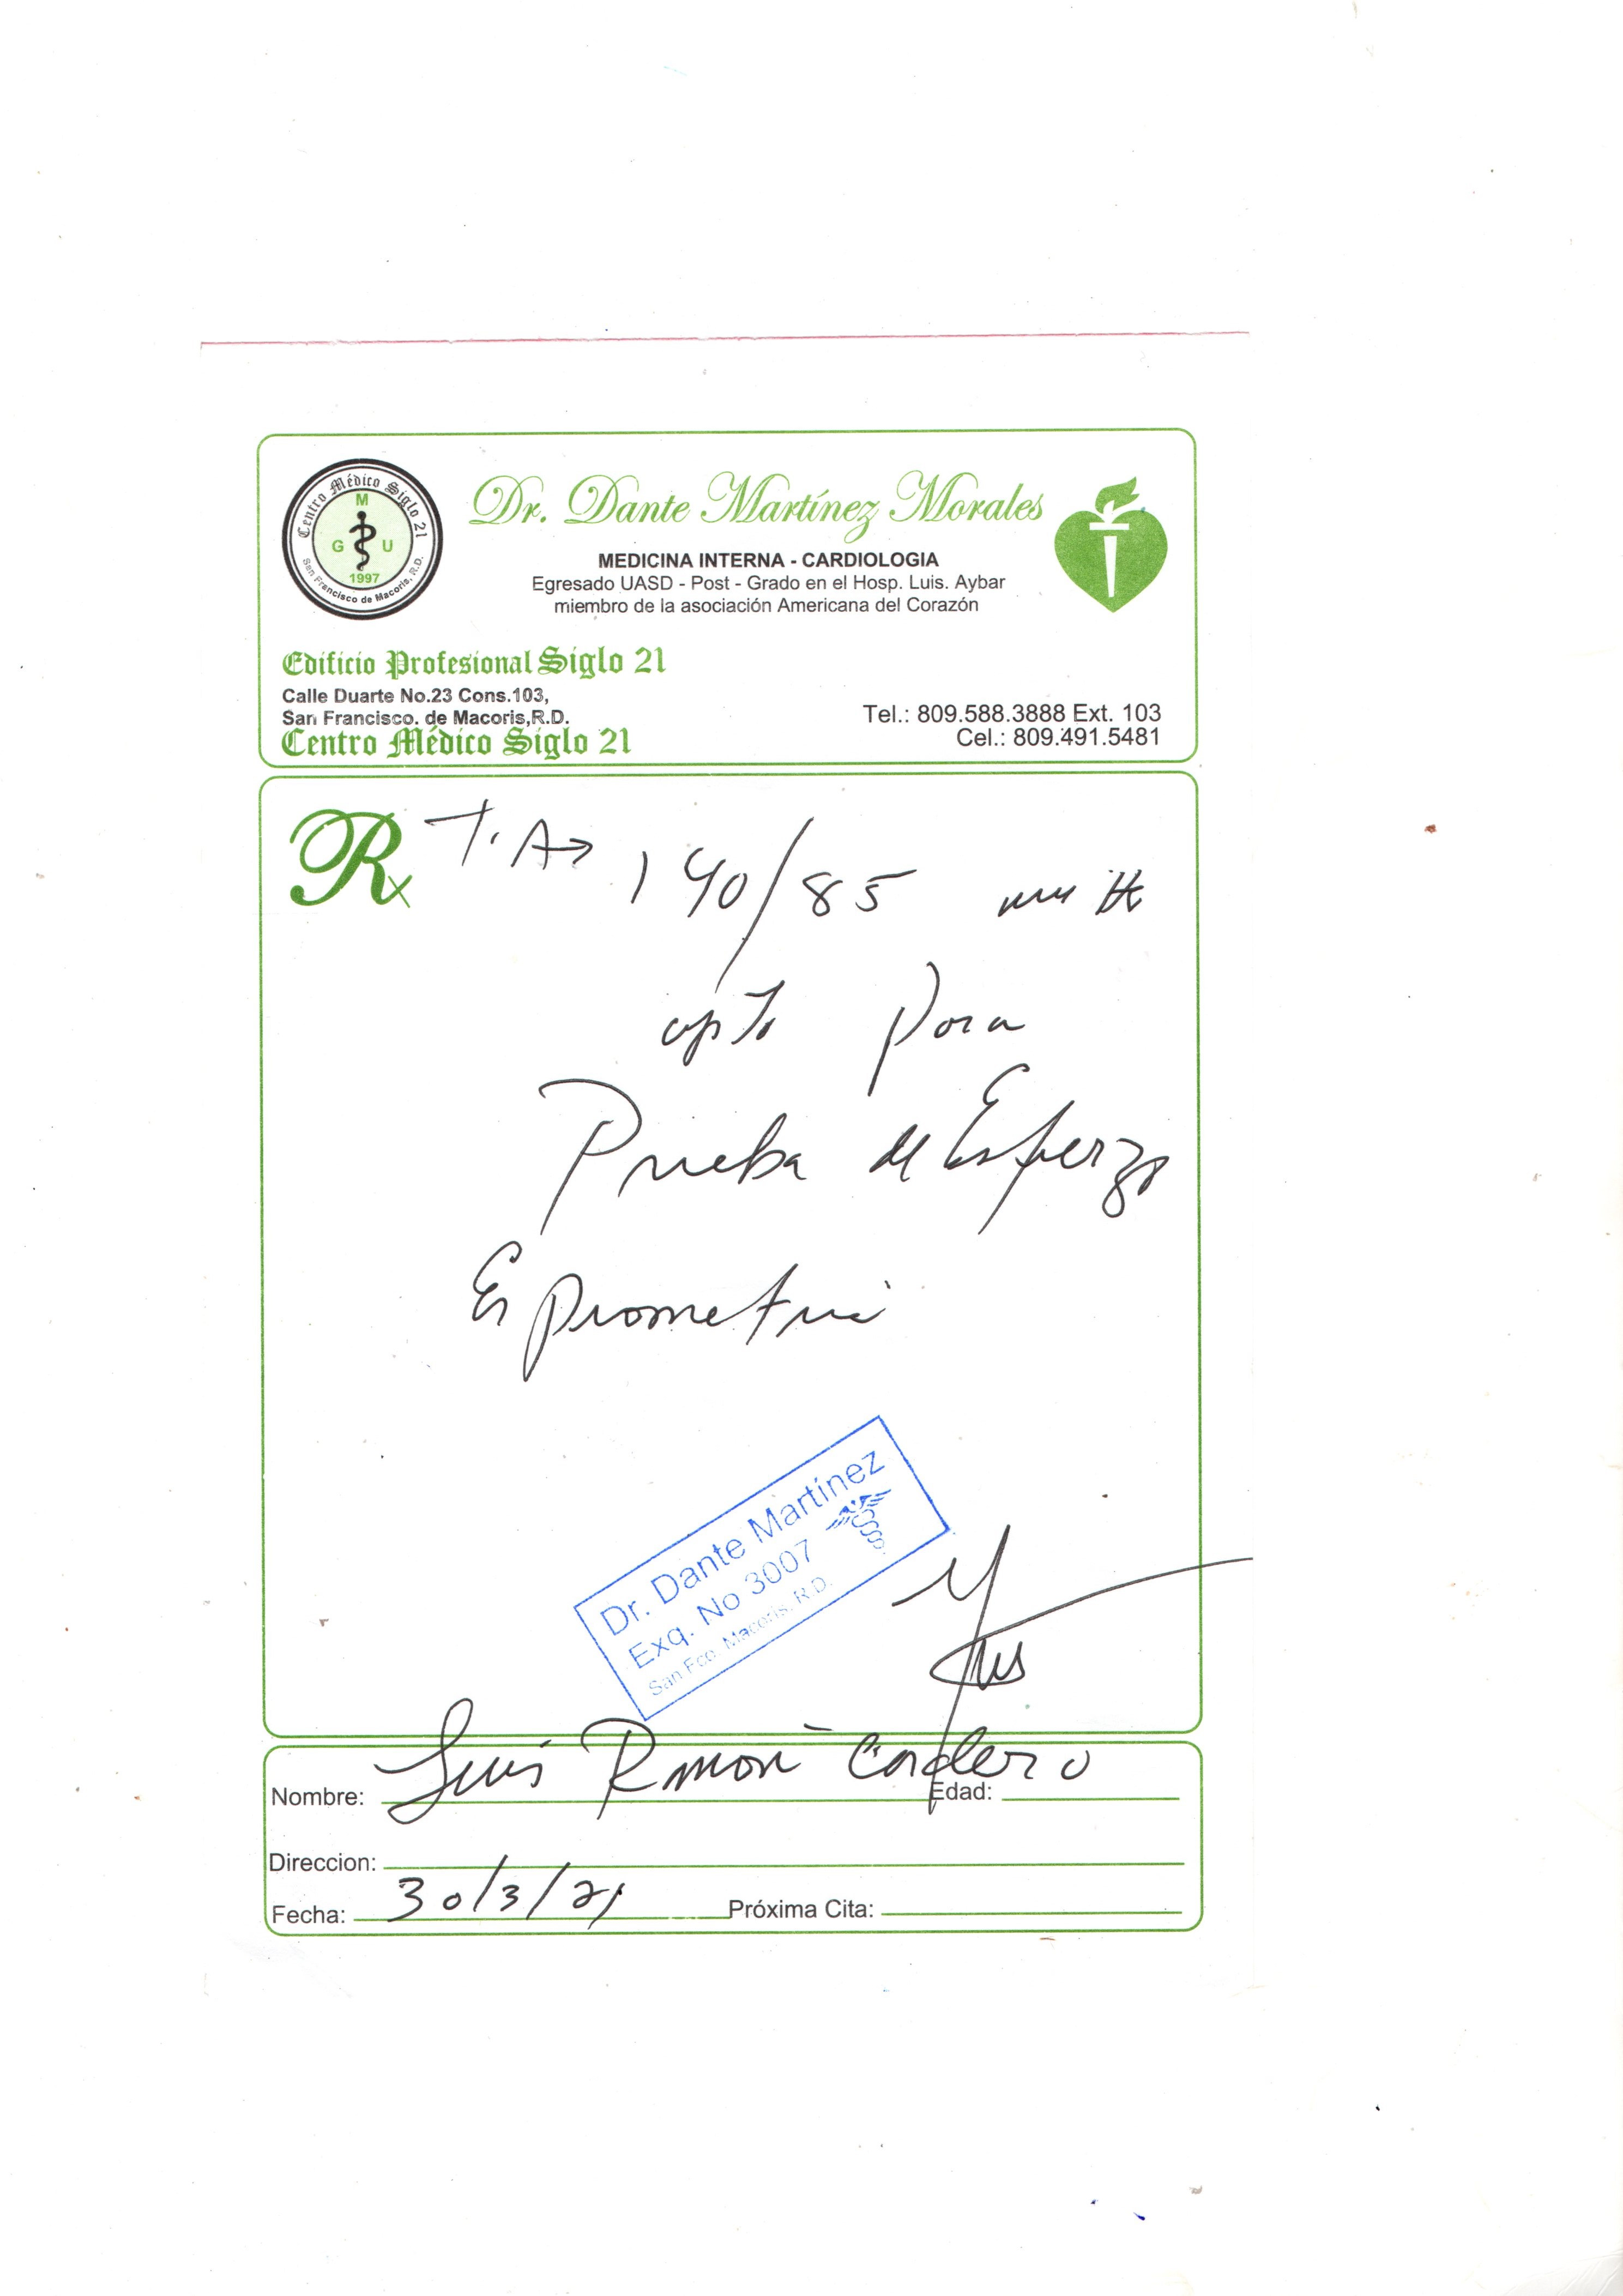 Centro Médico Siglo 21
M
G U
1997
San Francisco de Macoris, R.D.
Dr. Dante Martínez Morales
MEDICINA INTERNA - CARDIOLOGIA
Egresado UASD - Post - Grado en el Hosp. Luis. Aybar
miembro de la asociación Americana del Corazón
Edificio Profesional Siglo 21
Calle Duarte No.23 Cons.103,
San Francisco. de Macoris,R.D.
Centro Médico Siglo 21
Tel.: 809.588.3888 Ext. 103
Cel.: 809.491.5481
Rx T.A→ 140/85 mm H
apto para
Prueba de Esferzo
Espirometria
Dr. Dante Martínez
Exq. No 3007
San Fco. Macoris. R.D.
Nombre: Luis Ramon Cordero Edad:
Direccion:
Fecha: 30/3/21 Próxima Cita: